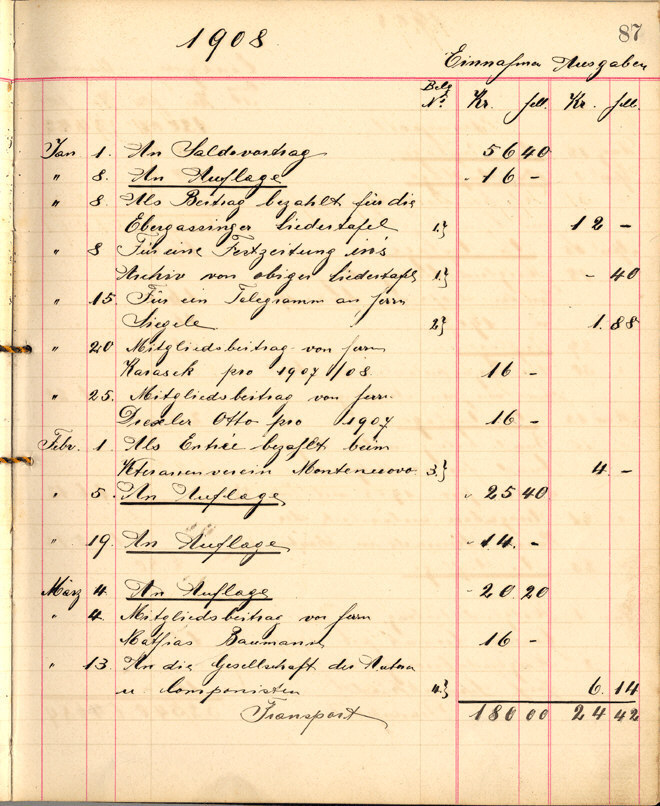 87
1908
Einnahmen Ausgaben
Belg No. Kr. hell. Kr. hell.
Jan 1. An Saldovortrag 56 40
" 8. An Auflage 16 -
" 8 Als Beitrag bezahlt für die
Ebergassinger Liedertafel 1.} 12 -
" 8 Für eine Festzeitung in's
Archiv von obiger Liedertafel 1.} - 40
" 15. Für ein Telegramm an Herrn
Siegele 2.} 1. 88
" 20 Mitgliedsbeitrag von Herrn
Karasek pro 1907/08 16 -
" 25. Mitgliedsbeitrag von Herrn
Drexler Otto pro 1907 16 -
Febr. 1. Als Entrée bezahlt beim
Veteranenverein 3.} 4. -
" 5. An Auflage 25 40
" 19. An Auflage 14. -
März 4. An Auflage 20. 20
" 4. Mitgliedsbeitrag von Herrn
Mathias Baumann 16 -
" 13. An die Gesellschaft der Autoren
u Componisten 4.} 6. 14
Transport 180 00 24 42